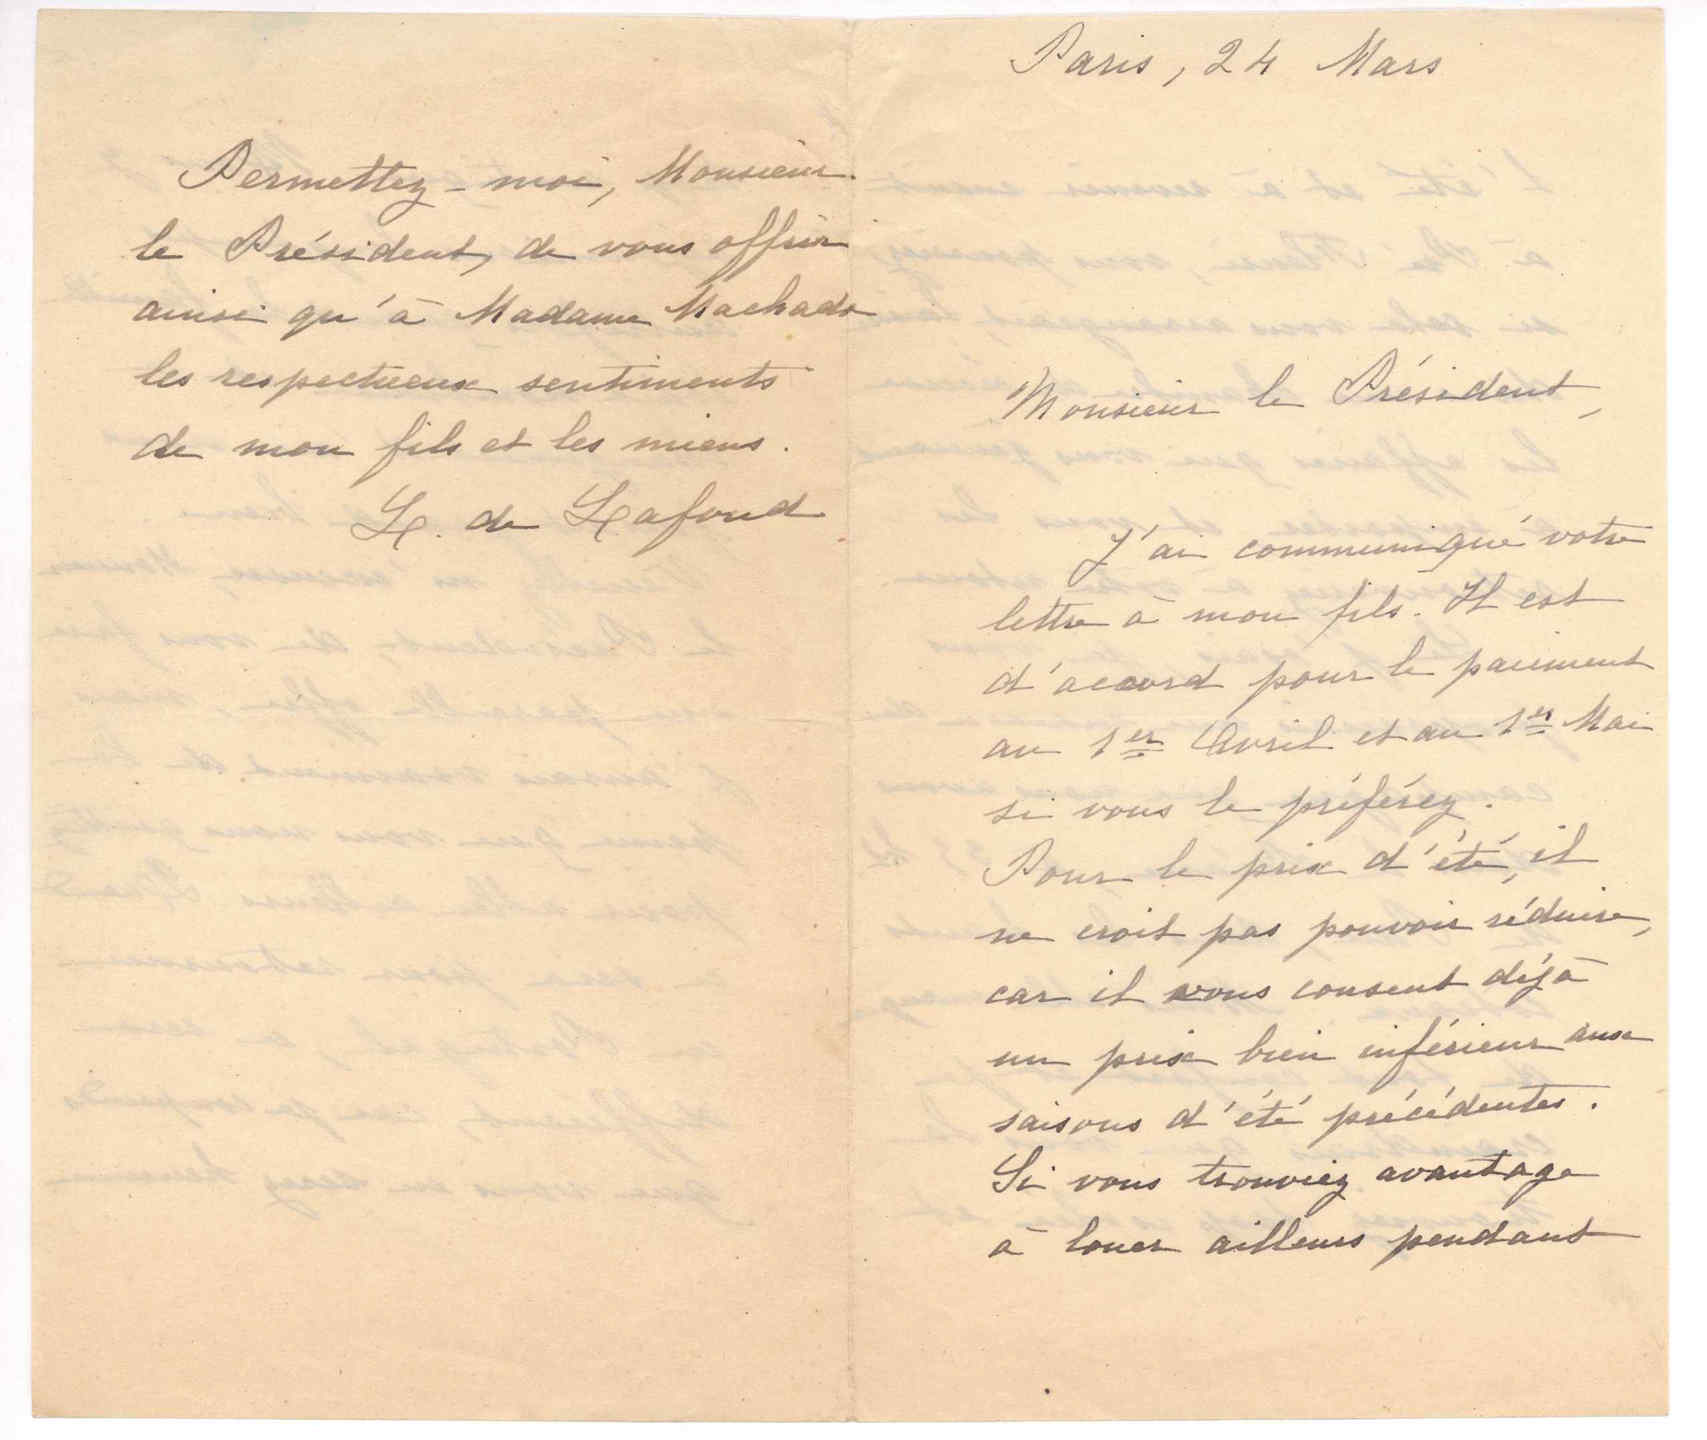 Paris, 24 Mars
Monsieur le Président,
J'ai communiqué votre
lettre à mon fils. Il est
d'accord pour le paiement
au 1er Avril et au 1er Mai
si vous le préférez.
Pour le prix d'été, il
ne croit pas pouvoir réduire,
car il vous consent déjà
un prix bien inférieur aux
saisons d'été précédentes.
Si vous trouviez avantage
à louer ailleurs pendant
Permettez-moi, Monsieur
le Président, de vous offrir
ainsi qu'à Madame Machado
les respectueux sentiments
de mon fils et les miens.
L. de Lafond